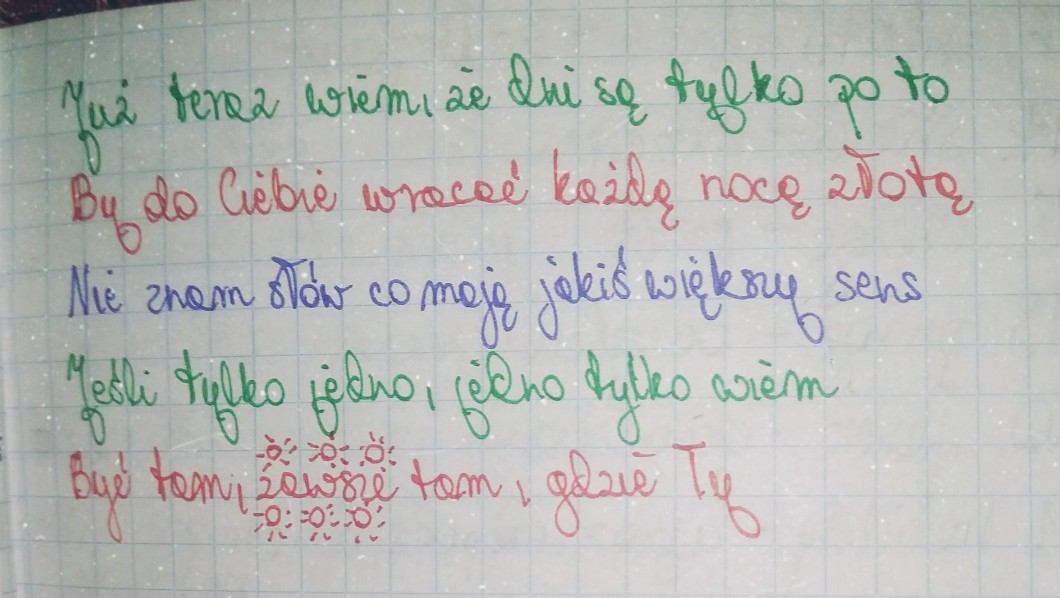 Już teraz wiem, że dni są tylko po to
By do Ciebie wracać każdą nocą złotą
Nie znam słów co mają jakiś większy sens
Jeśli tylko jedno, jedno tylko wiem
Być tam, zawsze tam, gdzie Ty